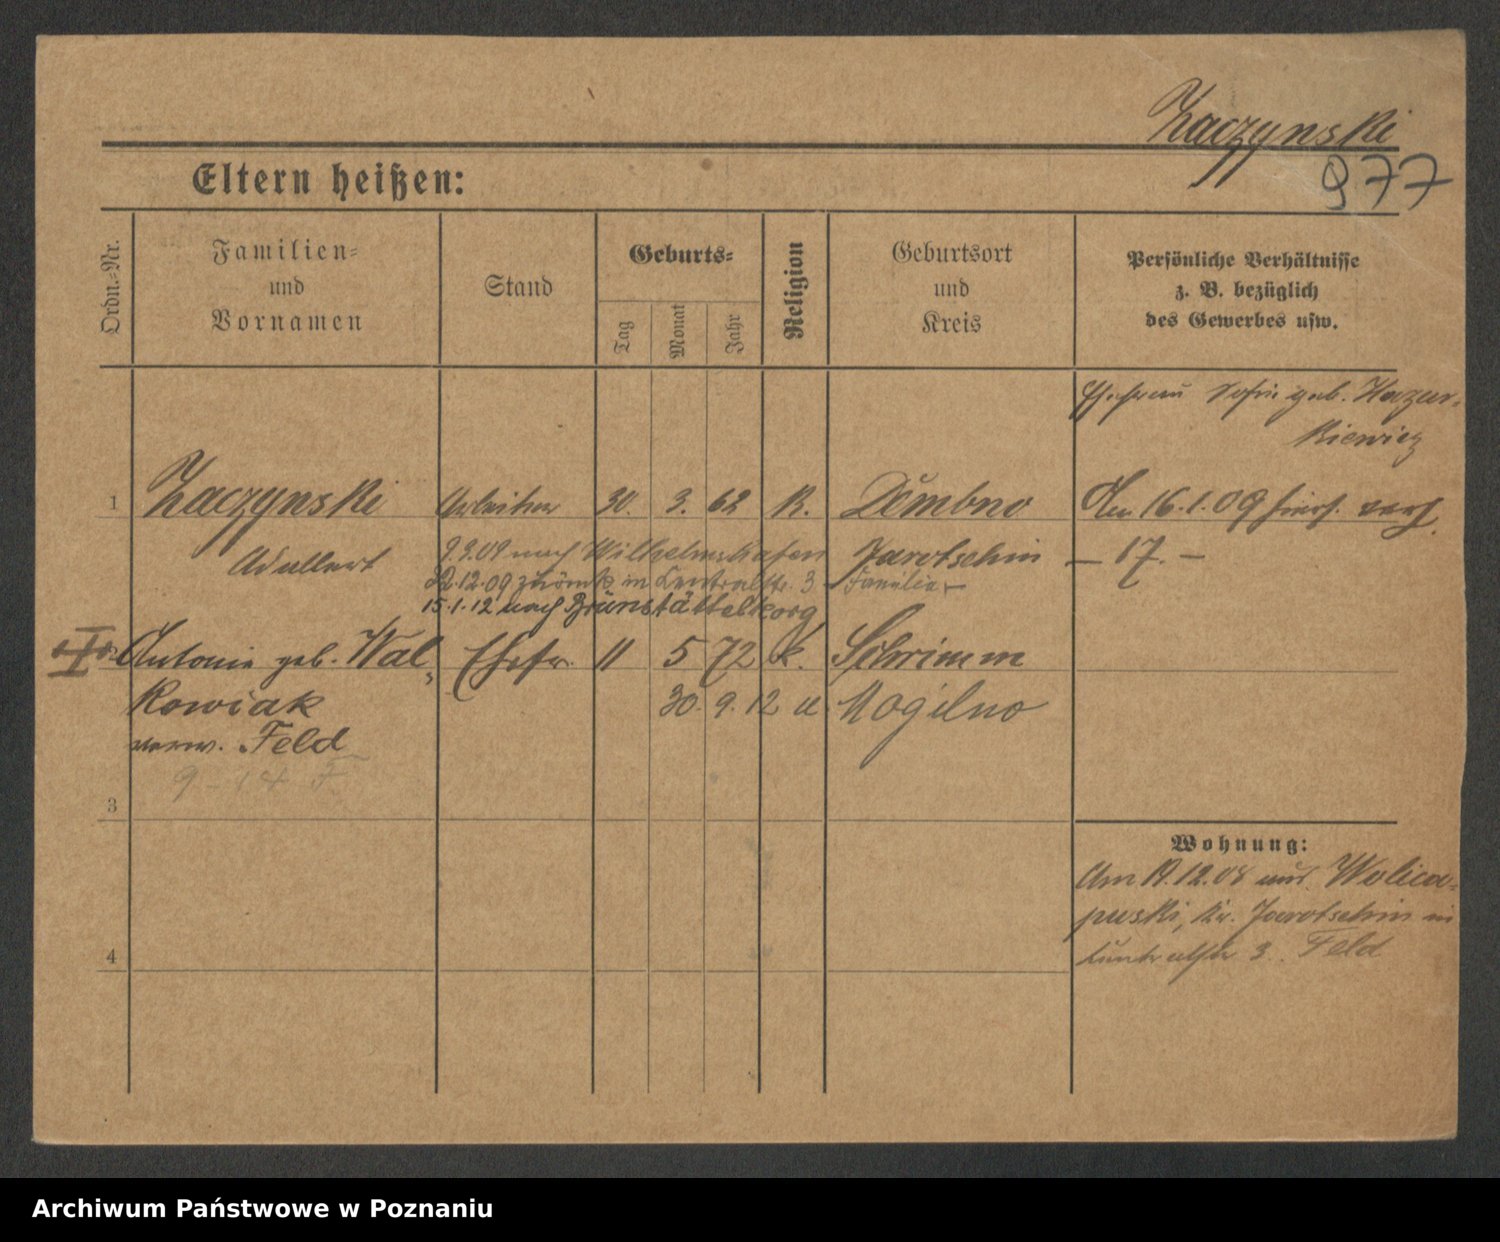 Kaczynski
977
Eltern heißen:
Ordn.-Nr.
Familien-
und
Vornamen
Stand
Geburts-
Tag
Monat
Jahr
Religion
Geburtsort
und
Kreis
Persönliche Verhältnisse
z. B. bezüglich
des Gewerbes usw.
Ehefrau geb. Kazur-
kiewicz
1 Kaczynski Arbeiter 30. 3. 62 K. Dembno Am 16.1.09 hiers. verh.
Adalbert 9.9.09 nach Wilhelmshafen Jarotschin — 17. —
12.09 zurück in Centralstr. 3 Familie —
15.1.12 nach Brunsbüttelkoog
II Antonie geb. Wal- Ehefr. 11 5 72 k. Schrimm
kowiak 30. 9. 12 a Mogilno
verw. Feld
9 - 14 F
3
Wohnung:
Am 19.12.08 aus Wolica-
puski, Kr. Jarotschin in
Centralstr 3. Feld
4
Archiwum Państwowe w Poznaniu